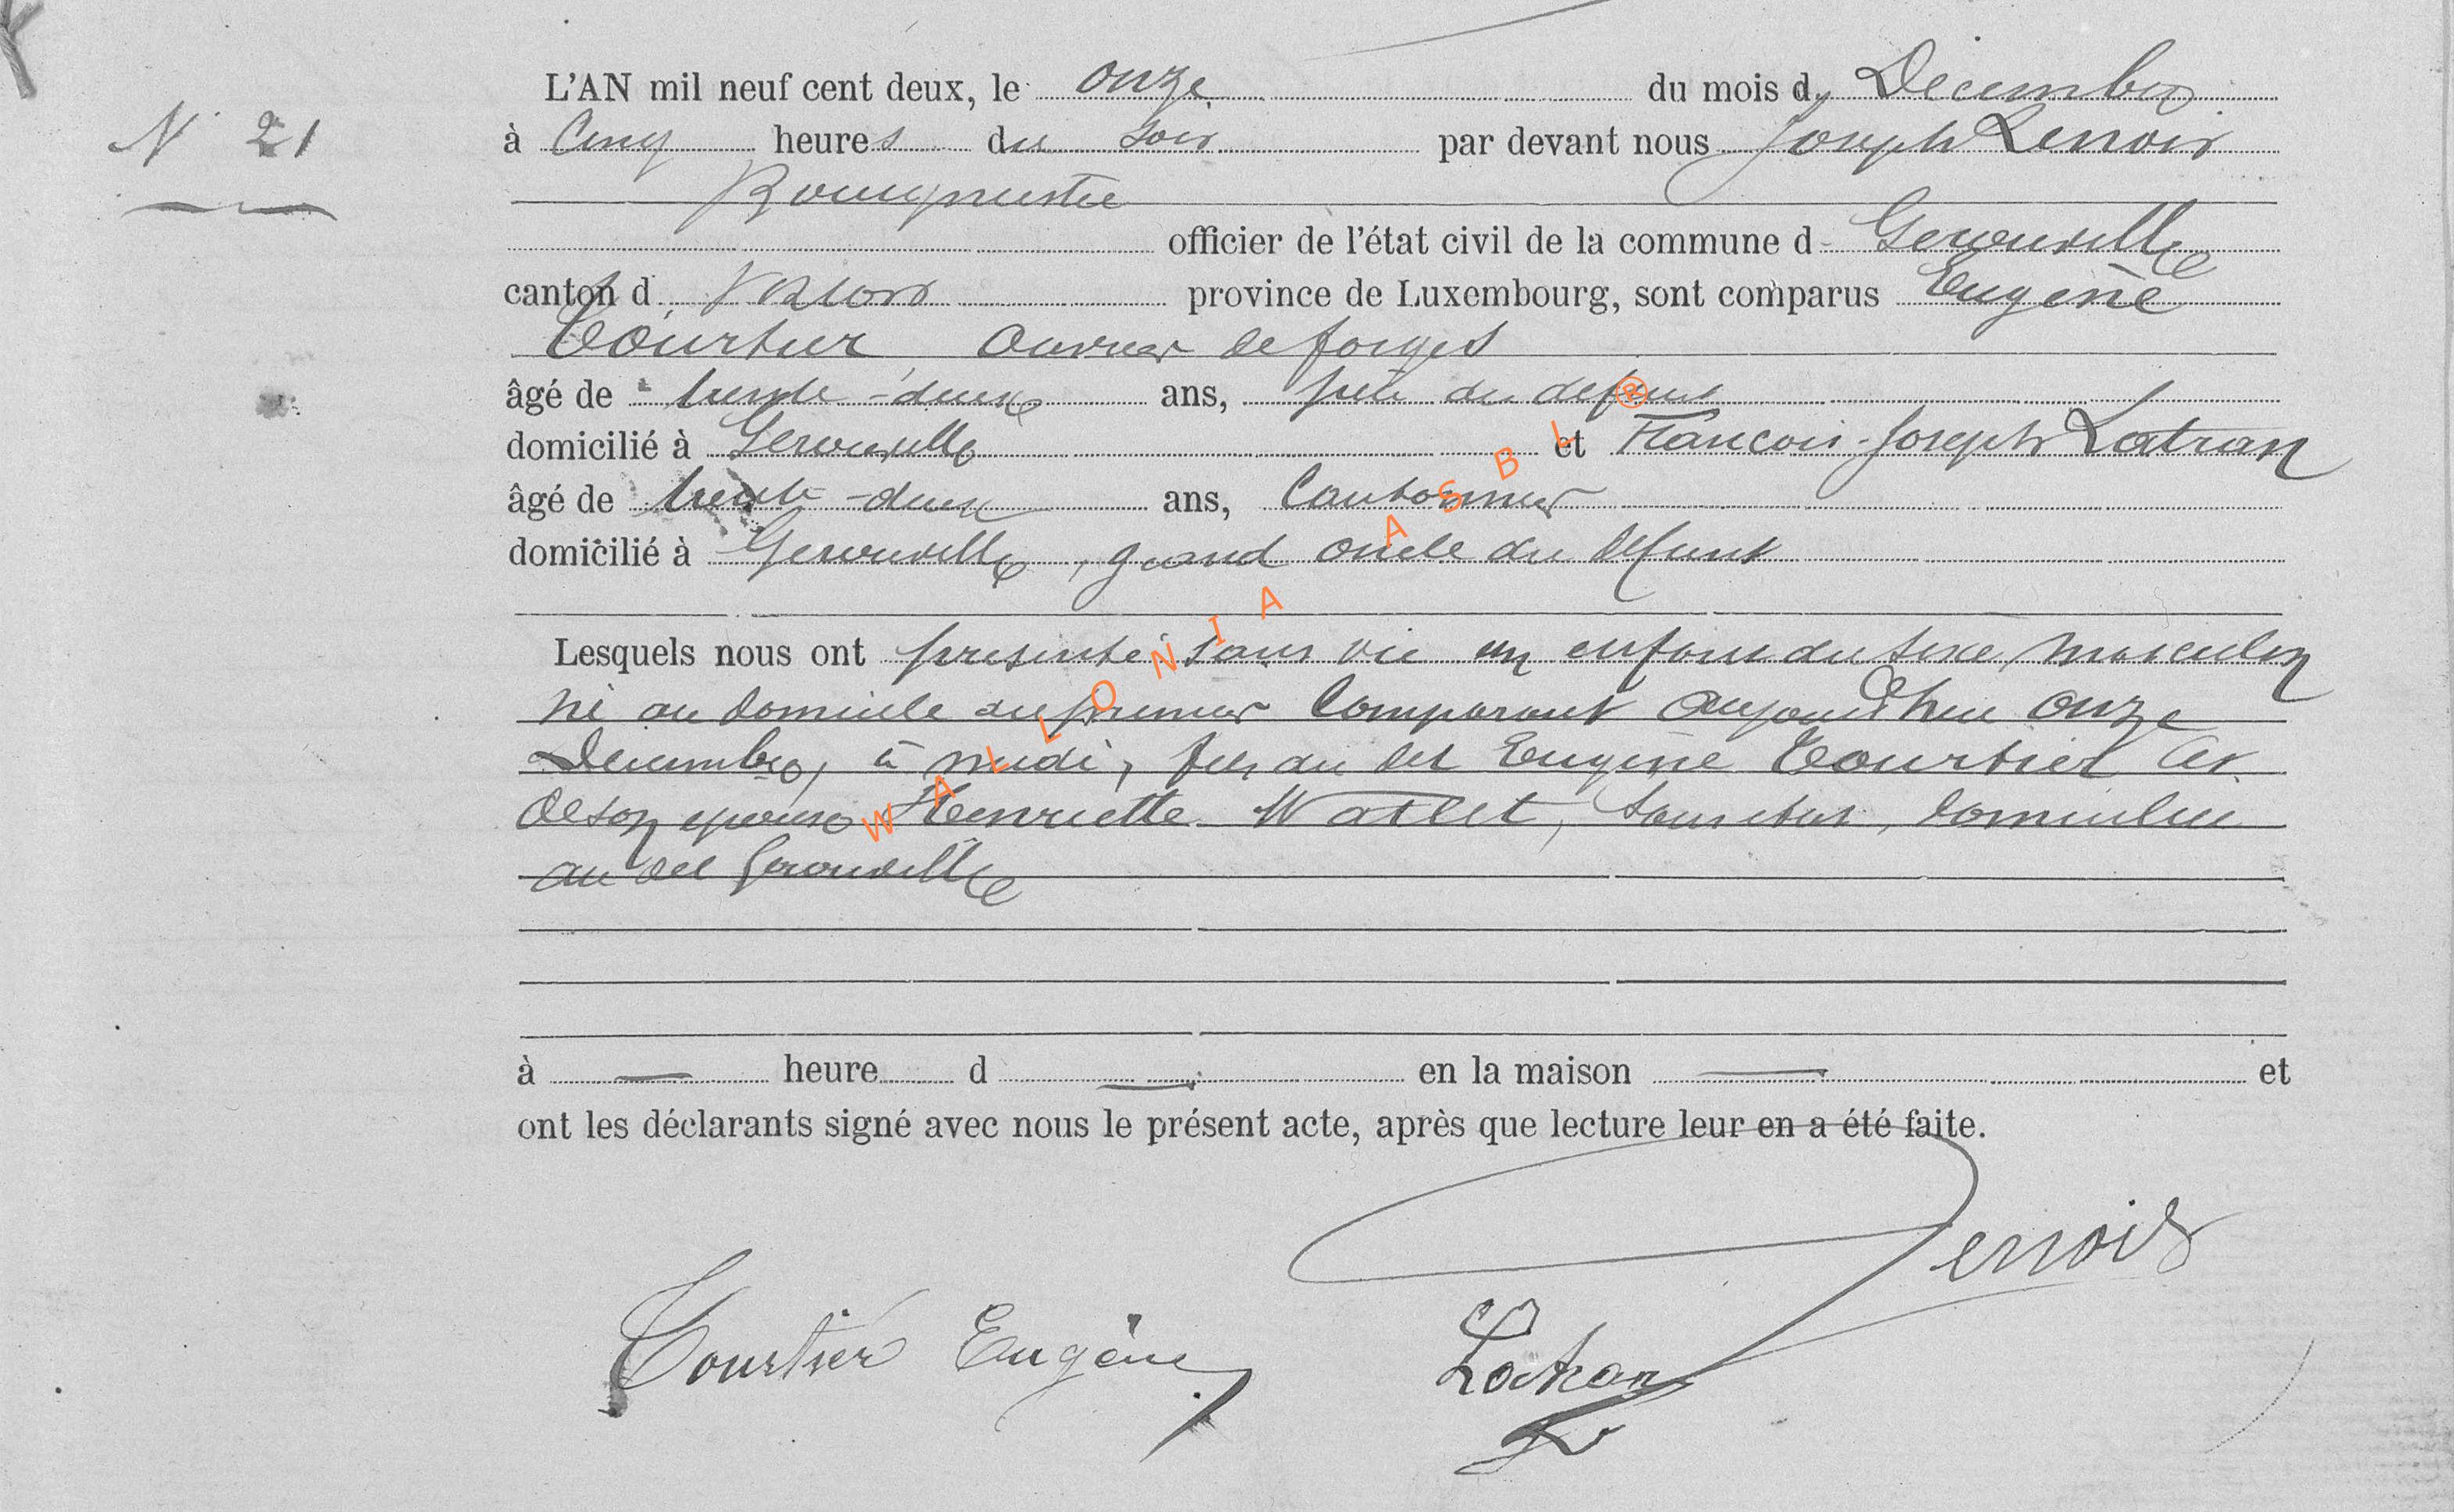 N° 21
L'AN mil neuf cent deux, le onze du mois d Decembre
à Cinq heures du soir par devant nous Joseph Lenoir
Bourgmestre
officier de l'état civil de la commune d Gerouville
canton d Virton province de Luxembourg, sont comparus Eugène
Tourtier Ouvrier de forges
âgé de trente-deux ans, père du defunt
domicilié à Gerouville et Francois-Joseph Latran
âgé de trente-deux ans, Cantonnier
domicilié à Gerouville, grand oncle du defunt
Lesquels nous ont presenté sans vie un enfant du sexe masculin
né au domicile du premier Comparant aujourd'hui onze
Decembre, à midi, fils du dit Eugène Tourtier et
de son epouse Henriette Watlet, sans etat, domiciliée
au dit Gerouville
à heure d en la maison et
ont les déclarants signé avec nous le présent acte, après que lecture leur en a été faite.
Lenoir
Tourtier Eugène
Latran
WALLONIA ASBL ®